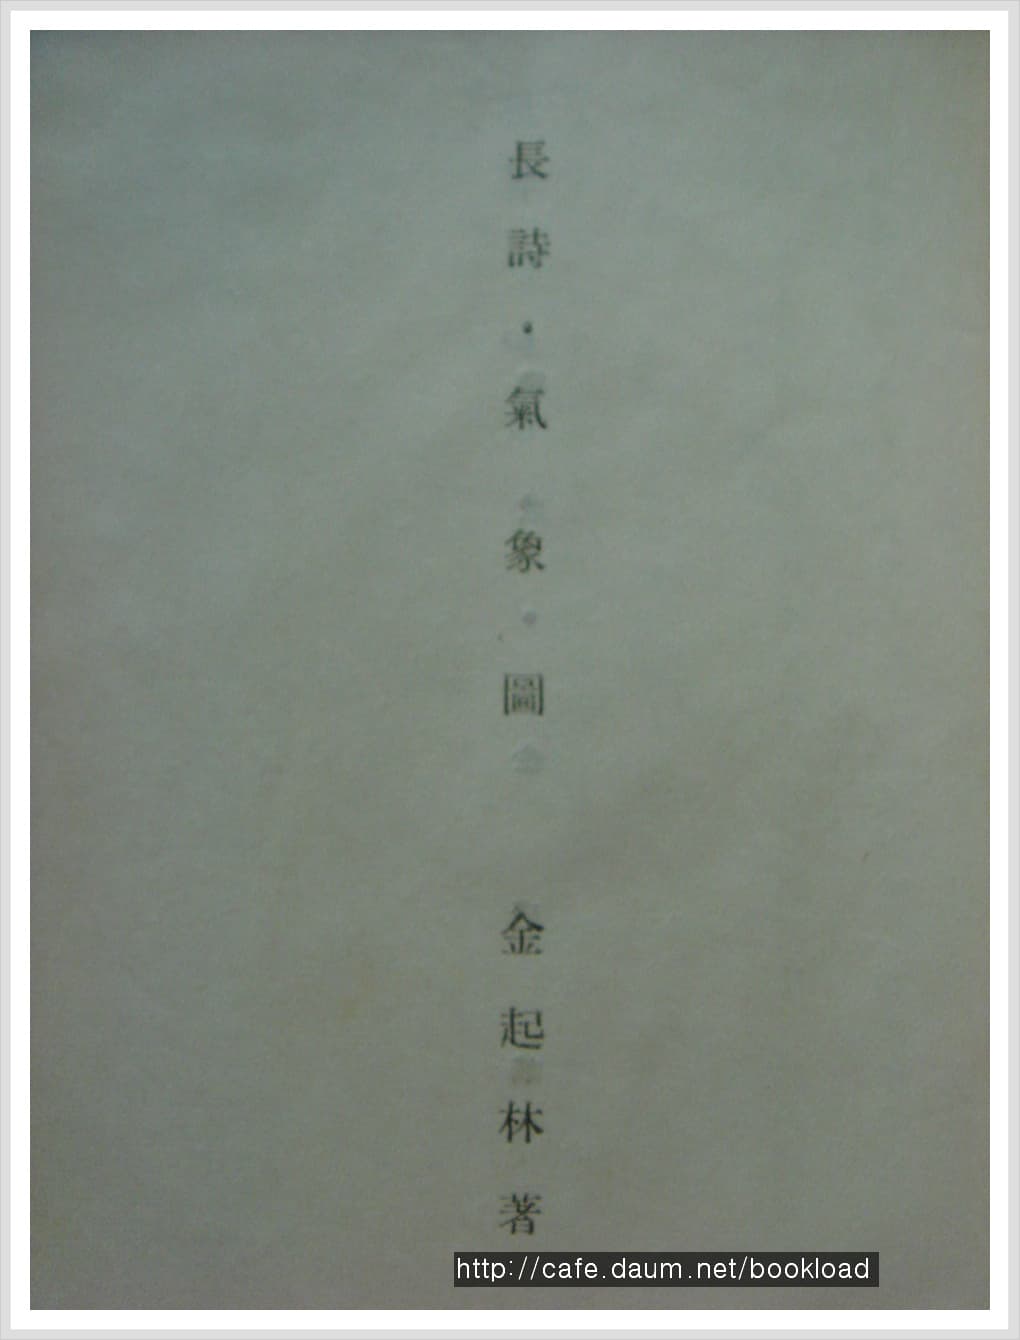 長詩・氣象圖 金起林 著
http://cafe.daum.net/bookload